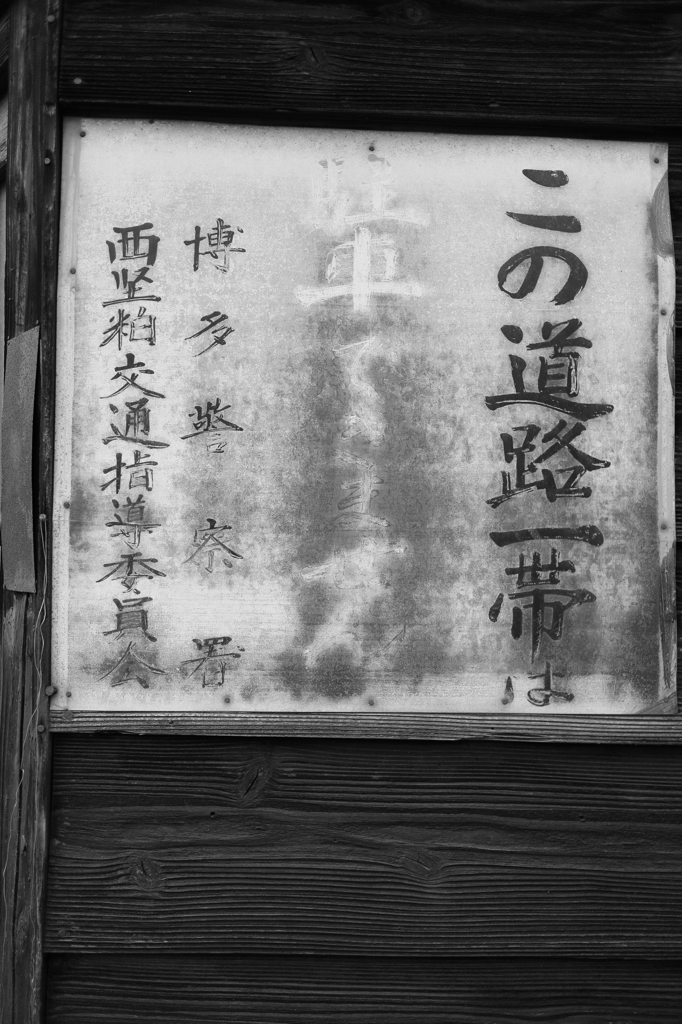 この道路一帯は
駐車できません
博多警察署
西堅粕交通指導委員会